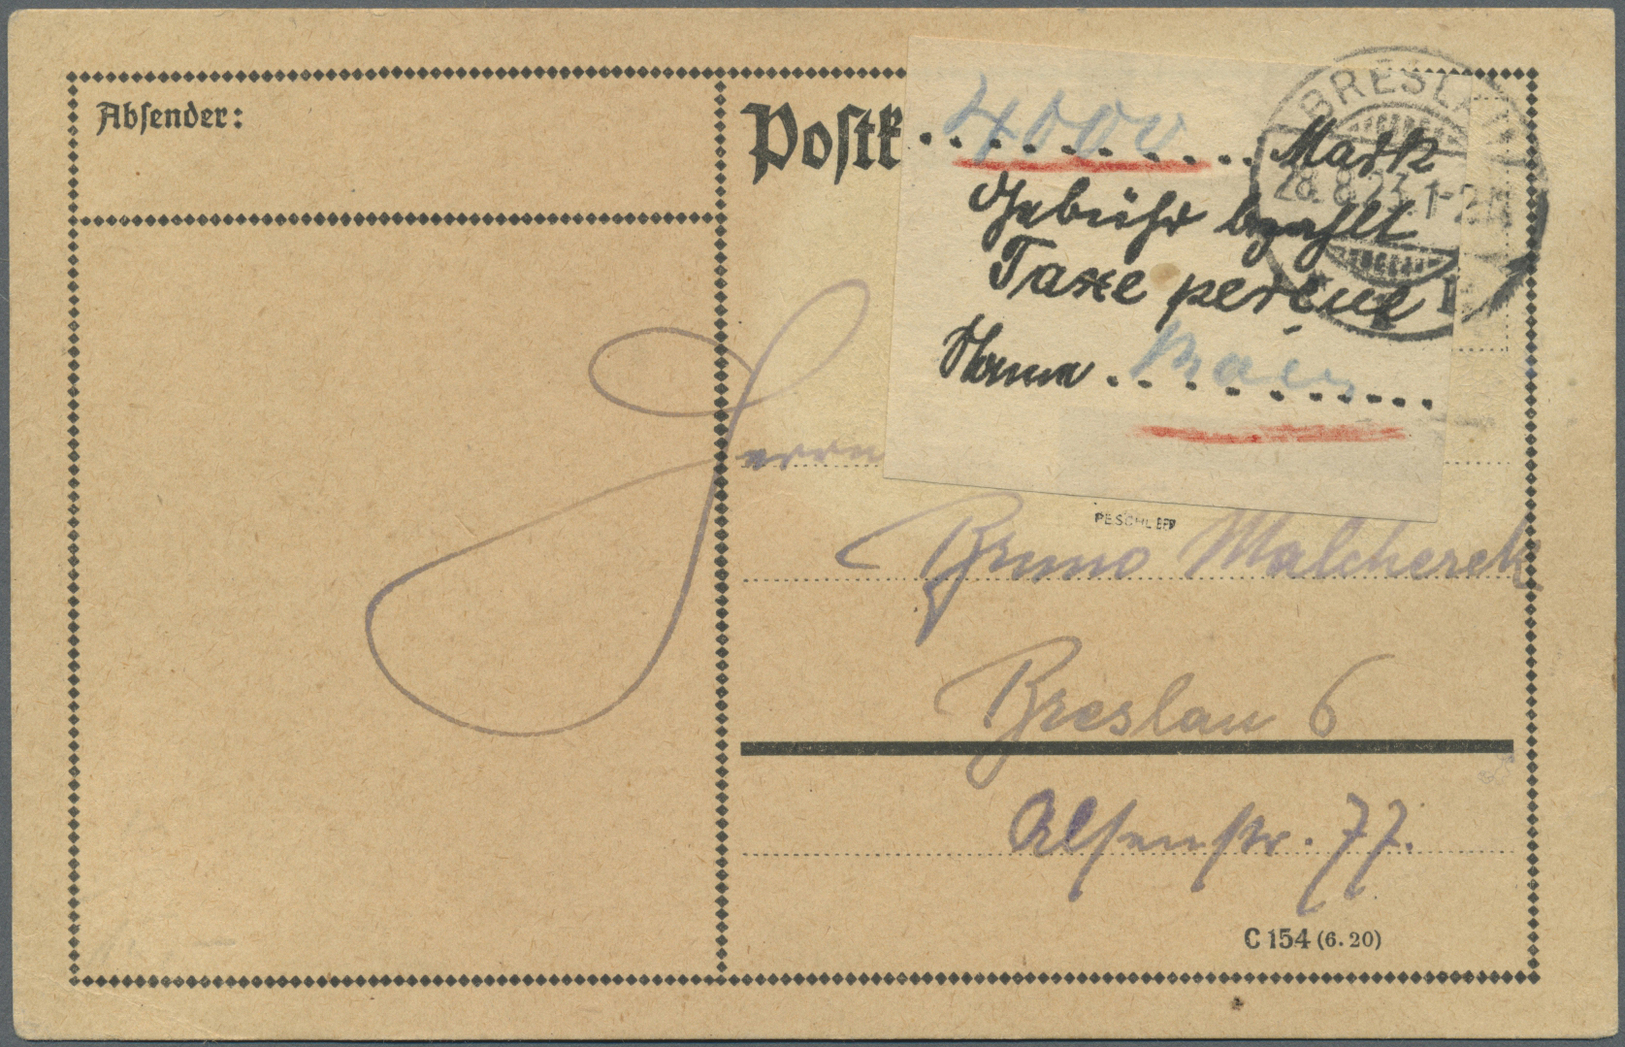 Absender:
Postk
4000 Mark
Gebühr bezahlt
Taxe percue
Name
BRESLAU
28.8.23.1-2N
1
Herrn
PESCHL BPP
Bruno Malcherek
Breslau 6
Alsenstr. 77.
C 154 (6.20)